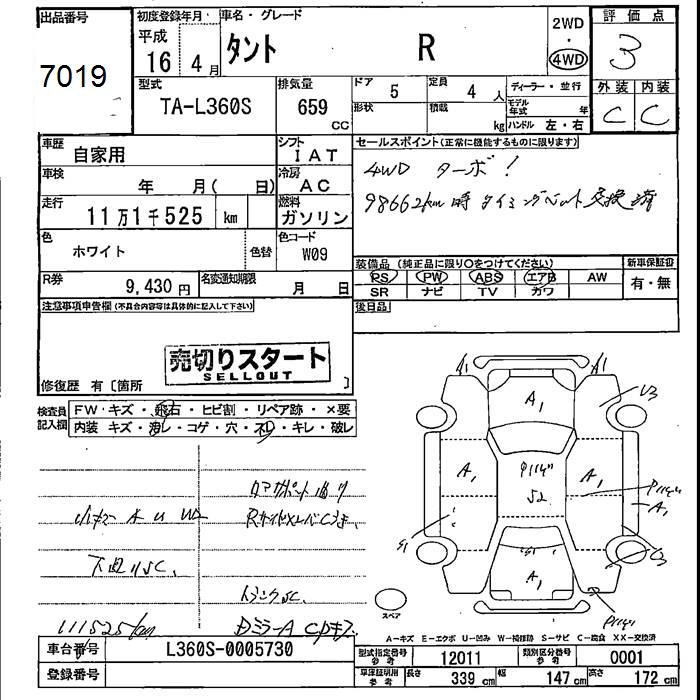 出品番号
7019
初度登録年月
平成
16年 4月
車名・グレード
タント R
2WD
・
4WD
評価点
3
外装 内装
C C
型式
TA-L360S
排気量
659
CC
ドア 5
定員 4人
形状
積載 kg
ディーラー・並行
モデル年式 年
ハンドル 左・右
車歴
自家用
シフト
IAT
車検
年 月( 日)
冷房
AC
走行
11万1千525 km
燃料
ガソリン
色
ホワイト
色替
色コード
W09
R券
9,430円
名変通知期限
月 日
セールスポイント(正常に機能するものに限ります)
4WD ターボ!
98662km時 タイミングベルト交換済
装備品(純正品に限り〇をつけてください)
RS PW ABS エアB AW
SR ナビ TV カワ
新車保証書
有・無
後日品
注意事項申告欄(不具合内容等は具体的に記入して下さい)
売切りスタート
SELLOUT
修復歴 有〔箇所 〕
検査員記入欄
FW・キズ・飛石・ヒビ割・リペア跡・×要
内装 キズ・汚レ・コゲ・穴・スレ・キレ・破レ
小キズ A U W2
下廻りSC、
トランクSC、
111525km
A1
A1
U3
A1
A1
A1
S2
A1
S1
C3
A1
スペア
A-キズ E-エクボ U-凹み W-補修跡 S-サビ C-腐食 XX-交換済
車台番号
L360S-0005730
登録番号
型式指定番号
参考
12011
類別区分番号
参考
0001
車庫証明用
参考
長さ 339 cm
幅 147 cm
高さ 172 cm